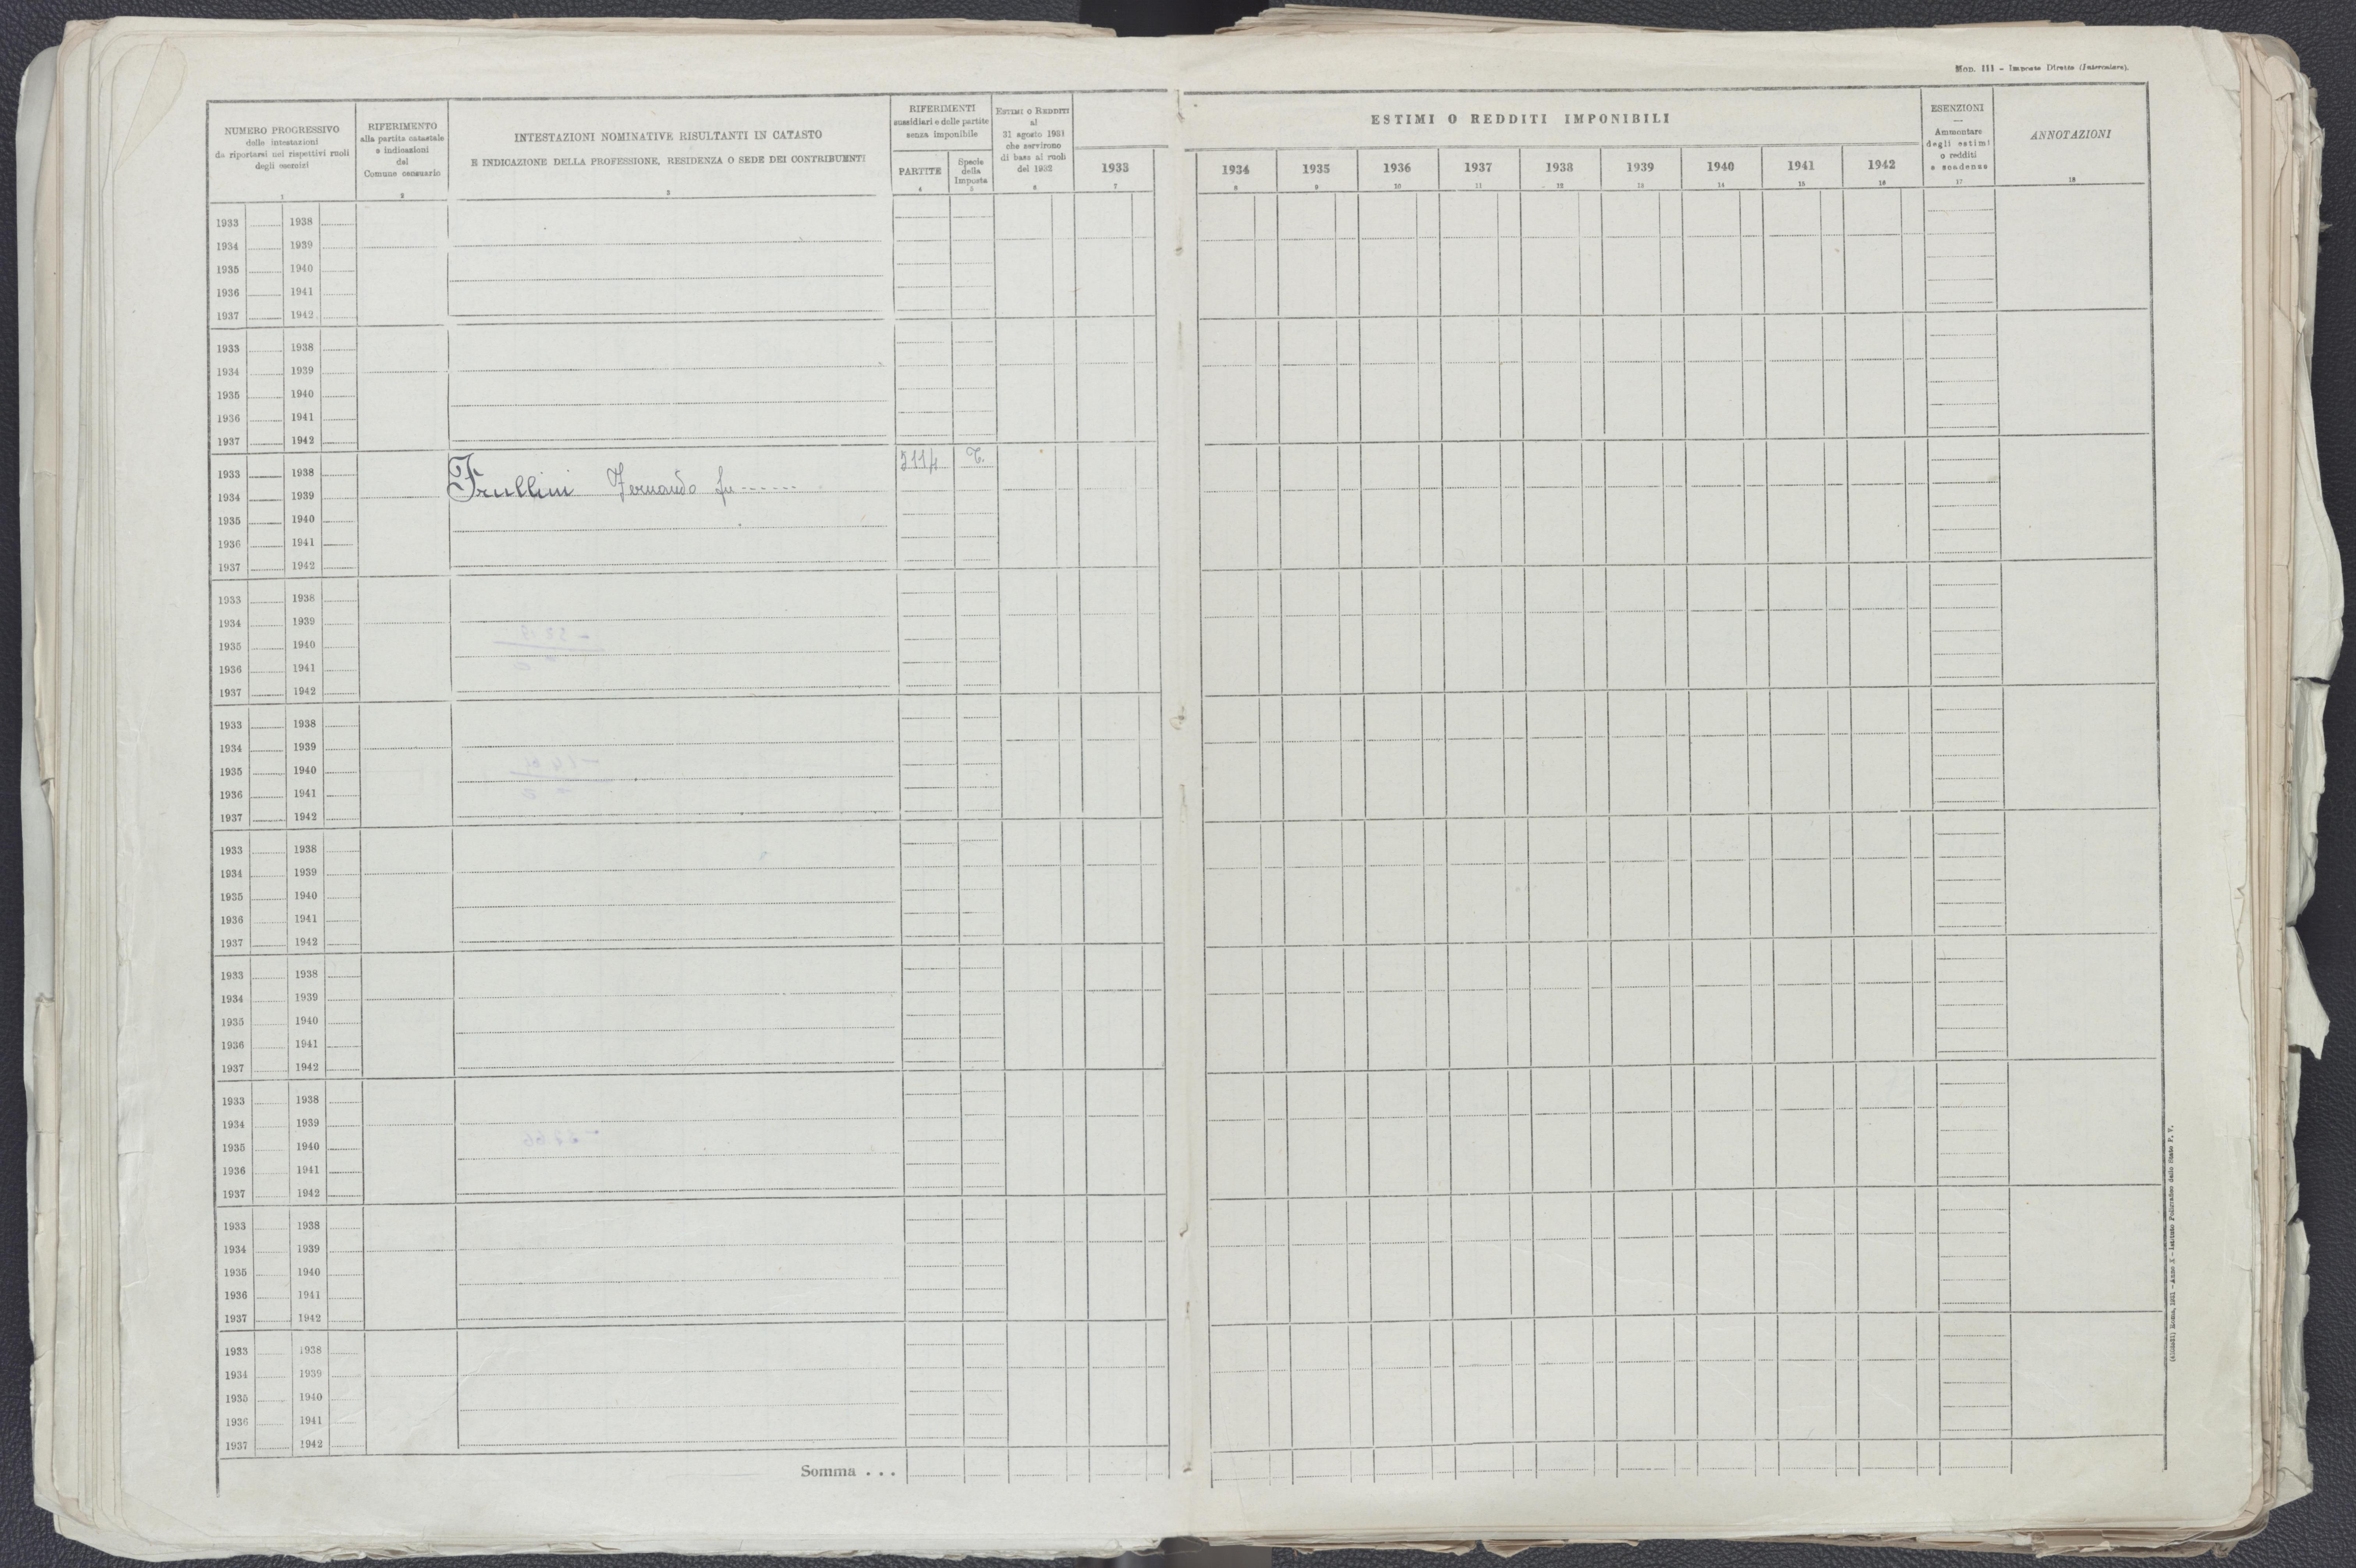 Mod. III - Imposte Dirette (Intercalare).
NUMERO PROGRESSIVO
delle intestazioni
da riportarsi nei rispettivi ruoli
degli esercizi
1
RIFERIMENTO
alla partita catastale
e indicazioni
del
Comune censuario
2
INTESTAZIONI NOMINATIVE RISULTANTI IN CATASTO
E INDICAZIONE DELLA PROFESSIONE, RESIDENZA O SEDE DEI CONTRIBUENTI
3
RIFERIMENTI
sussidiari e delle partite
senza imponibile
PARTITE
4
Specie
della
Imposta
5
ESTIMI O REDDITI
al
31 agosto 1931
che servirono
di base ai ruoli
del 1932
6
1933
7
ESTIMI O REDDITI IMPONIBILI
1934 1935 1936 1937 1938 1939 1940 1941 1942
8 9 10 11 12 13 14 15 16
ESENZIONI
Ammontare
degli estimi
o redditi
e scadenze
17
ANNOTAZIONI
18
1933 1938
1934 1939
1935 1940
1936 1941
1937 1942
1933 1938
1934 1939
1935 1940
1936 1941
1937 1942
1933 1938 T.
1934 1939 Frullini Fernando fu ------
1935 1940
1936 1941
1937 1942
1933 1938
1934 1939
1935 1940
1936 1941
1937 1942
1933 1938
1934 1939
1935 1940
1936 1941
1937 1942
1933 1938
1934 1939
1935 1940
1936 1941
1937 1942
1933 1938
1934 1939
1935 1940
1936 1941
1937 1942
1933 1938
1934 1939
1935 1940
1936 1941
1937 1942
1933 1938
1934 1939
1935 1940
1936 1941
1937 1942
1933 1938
1934 1939
1935 1940
1936 1941
1937 1942
Somma . . .
Roma, 1931 - Anno X - Istituto Poligrafico dello Stato P. V.